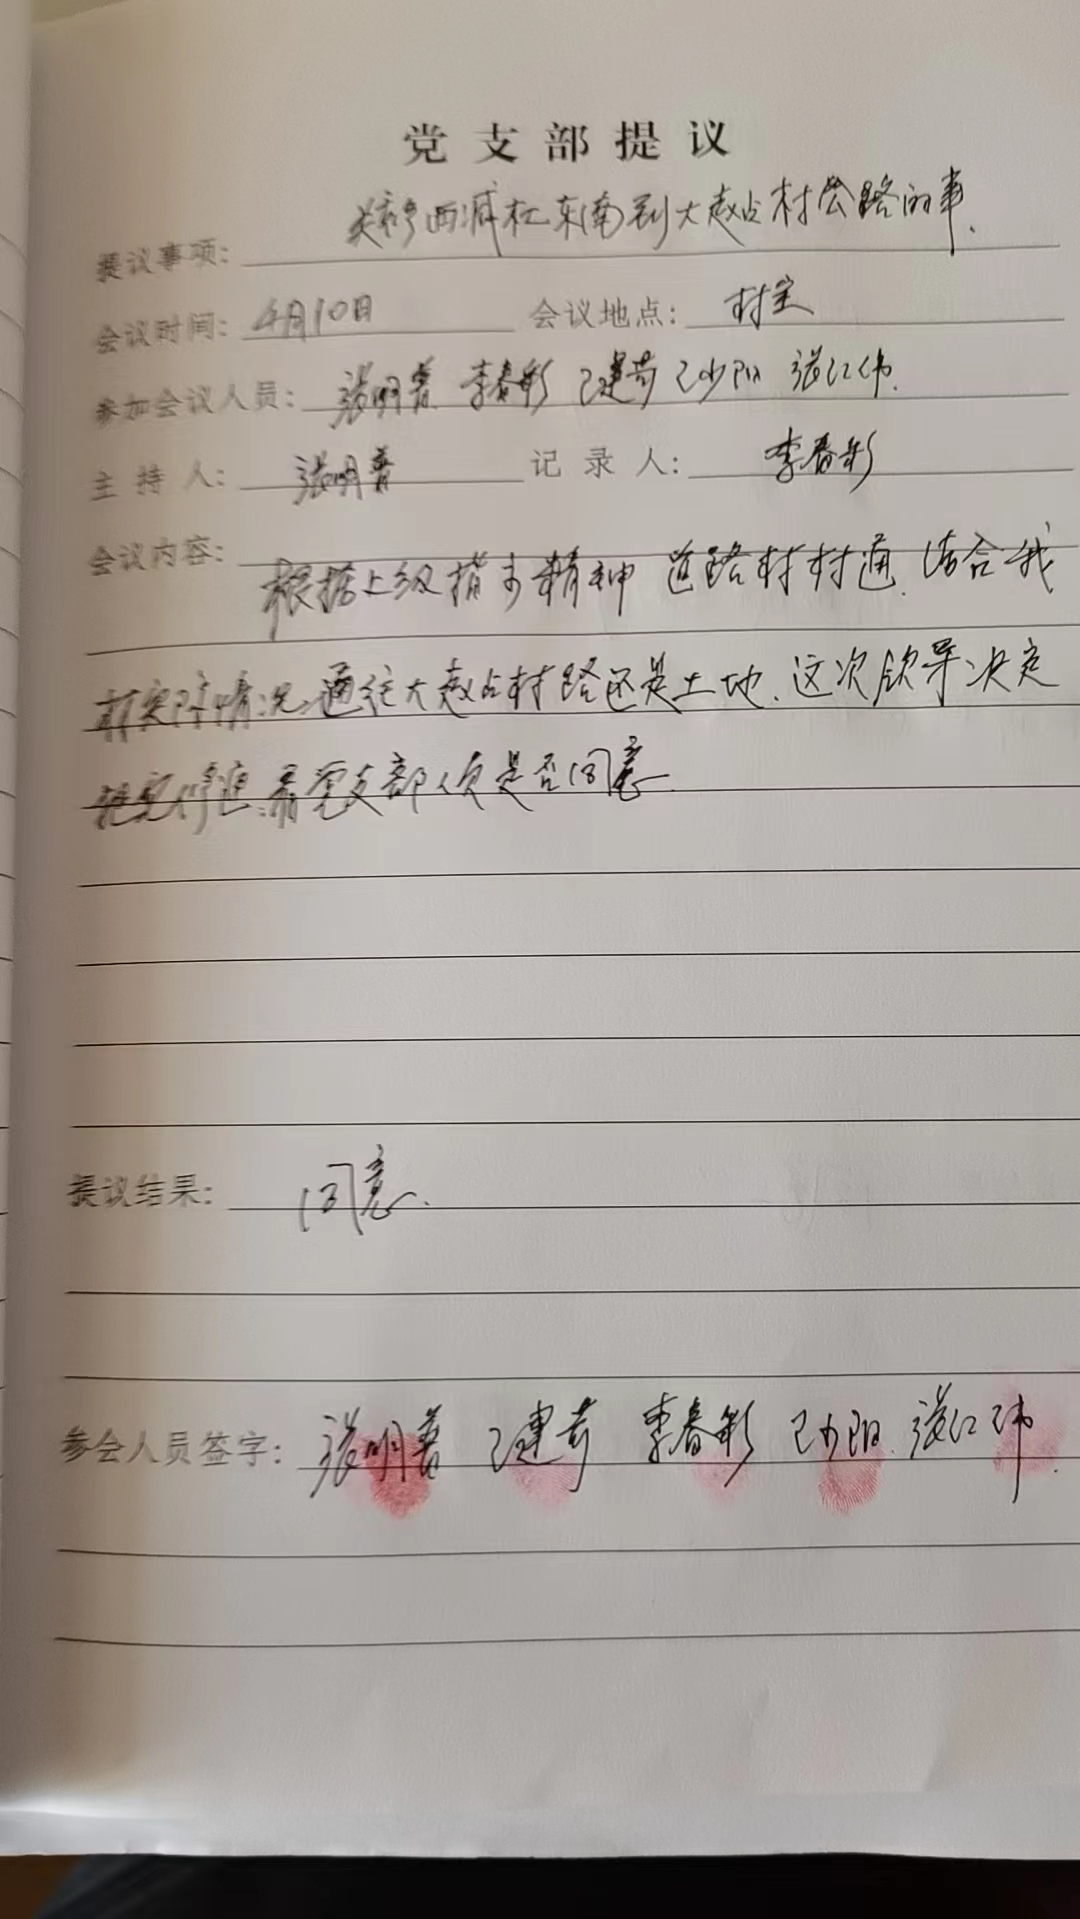 党支部提议
提议事项: 西减杜东南到大赵占村公路的事.
会议时间: 4月10日 会议地点: 村室
参加会议人员: 张明普 李春彩 建 少阳 张红伟.
主持人: 张明普 记录人: 李春彩
会议内容: 根据上级指示精神 道路村村通, 结合我
村实际情况, 通往大赵占村路还是土地. 这次领导决定
修, 看党支部人员是否同意.
提议结果: 同意.
参会人员签字: 张明普 建 李春彩 少阳. 张红伟.